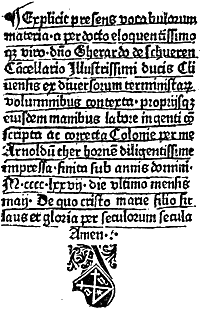 ¶Explicit presens vocabulorum
materia. a perdocto eloquentissimo
qz viro. dño Gherardo de schueren
Cãcellario Illustrissimi ducis Cli
uensis ex diuersorum terministarũ
voluminibus contexta. propriisqz
eiusdem manibus labore ingenti cõ
scripta ac correcta Colonie per me
Arnoldũ ther hornẽ diligentissime
impressa. finita sub annis domini.
M. cccc. lxxvij. die vltimo mensis
maij. De quo cristo marie filio sit
laus et gloria per seculorum secula
Amen.:.